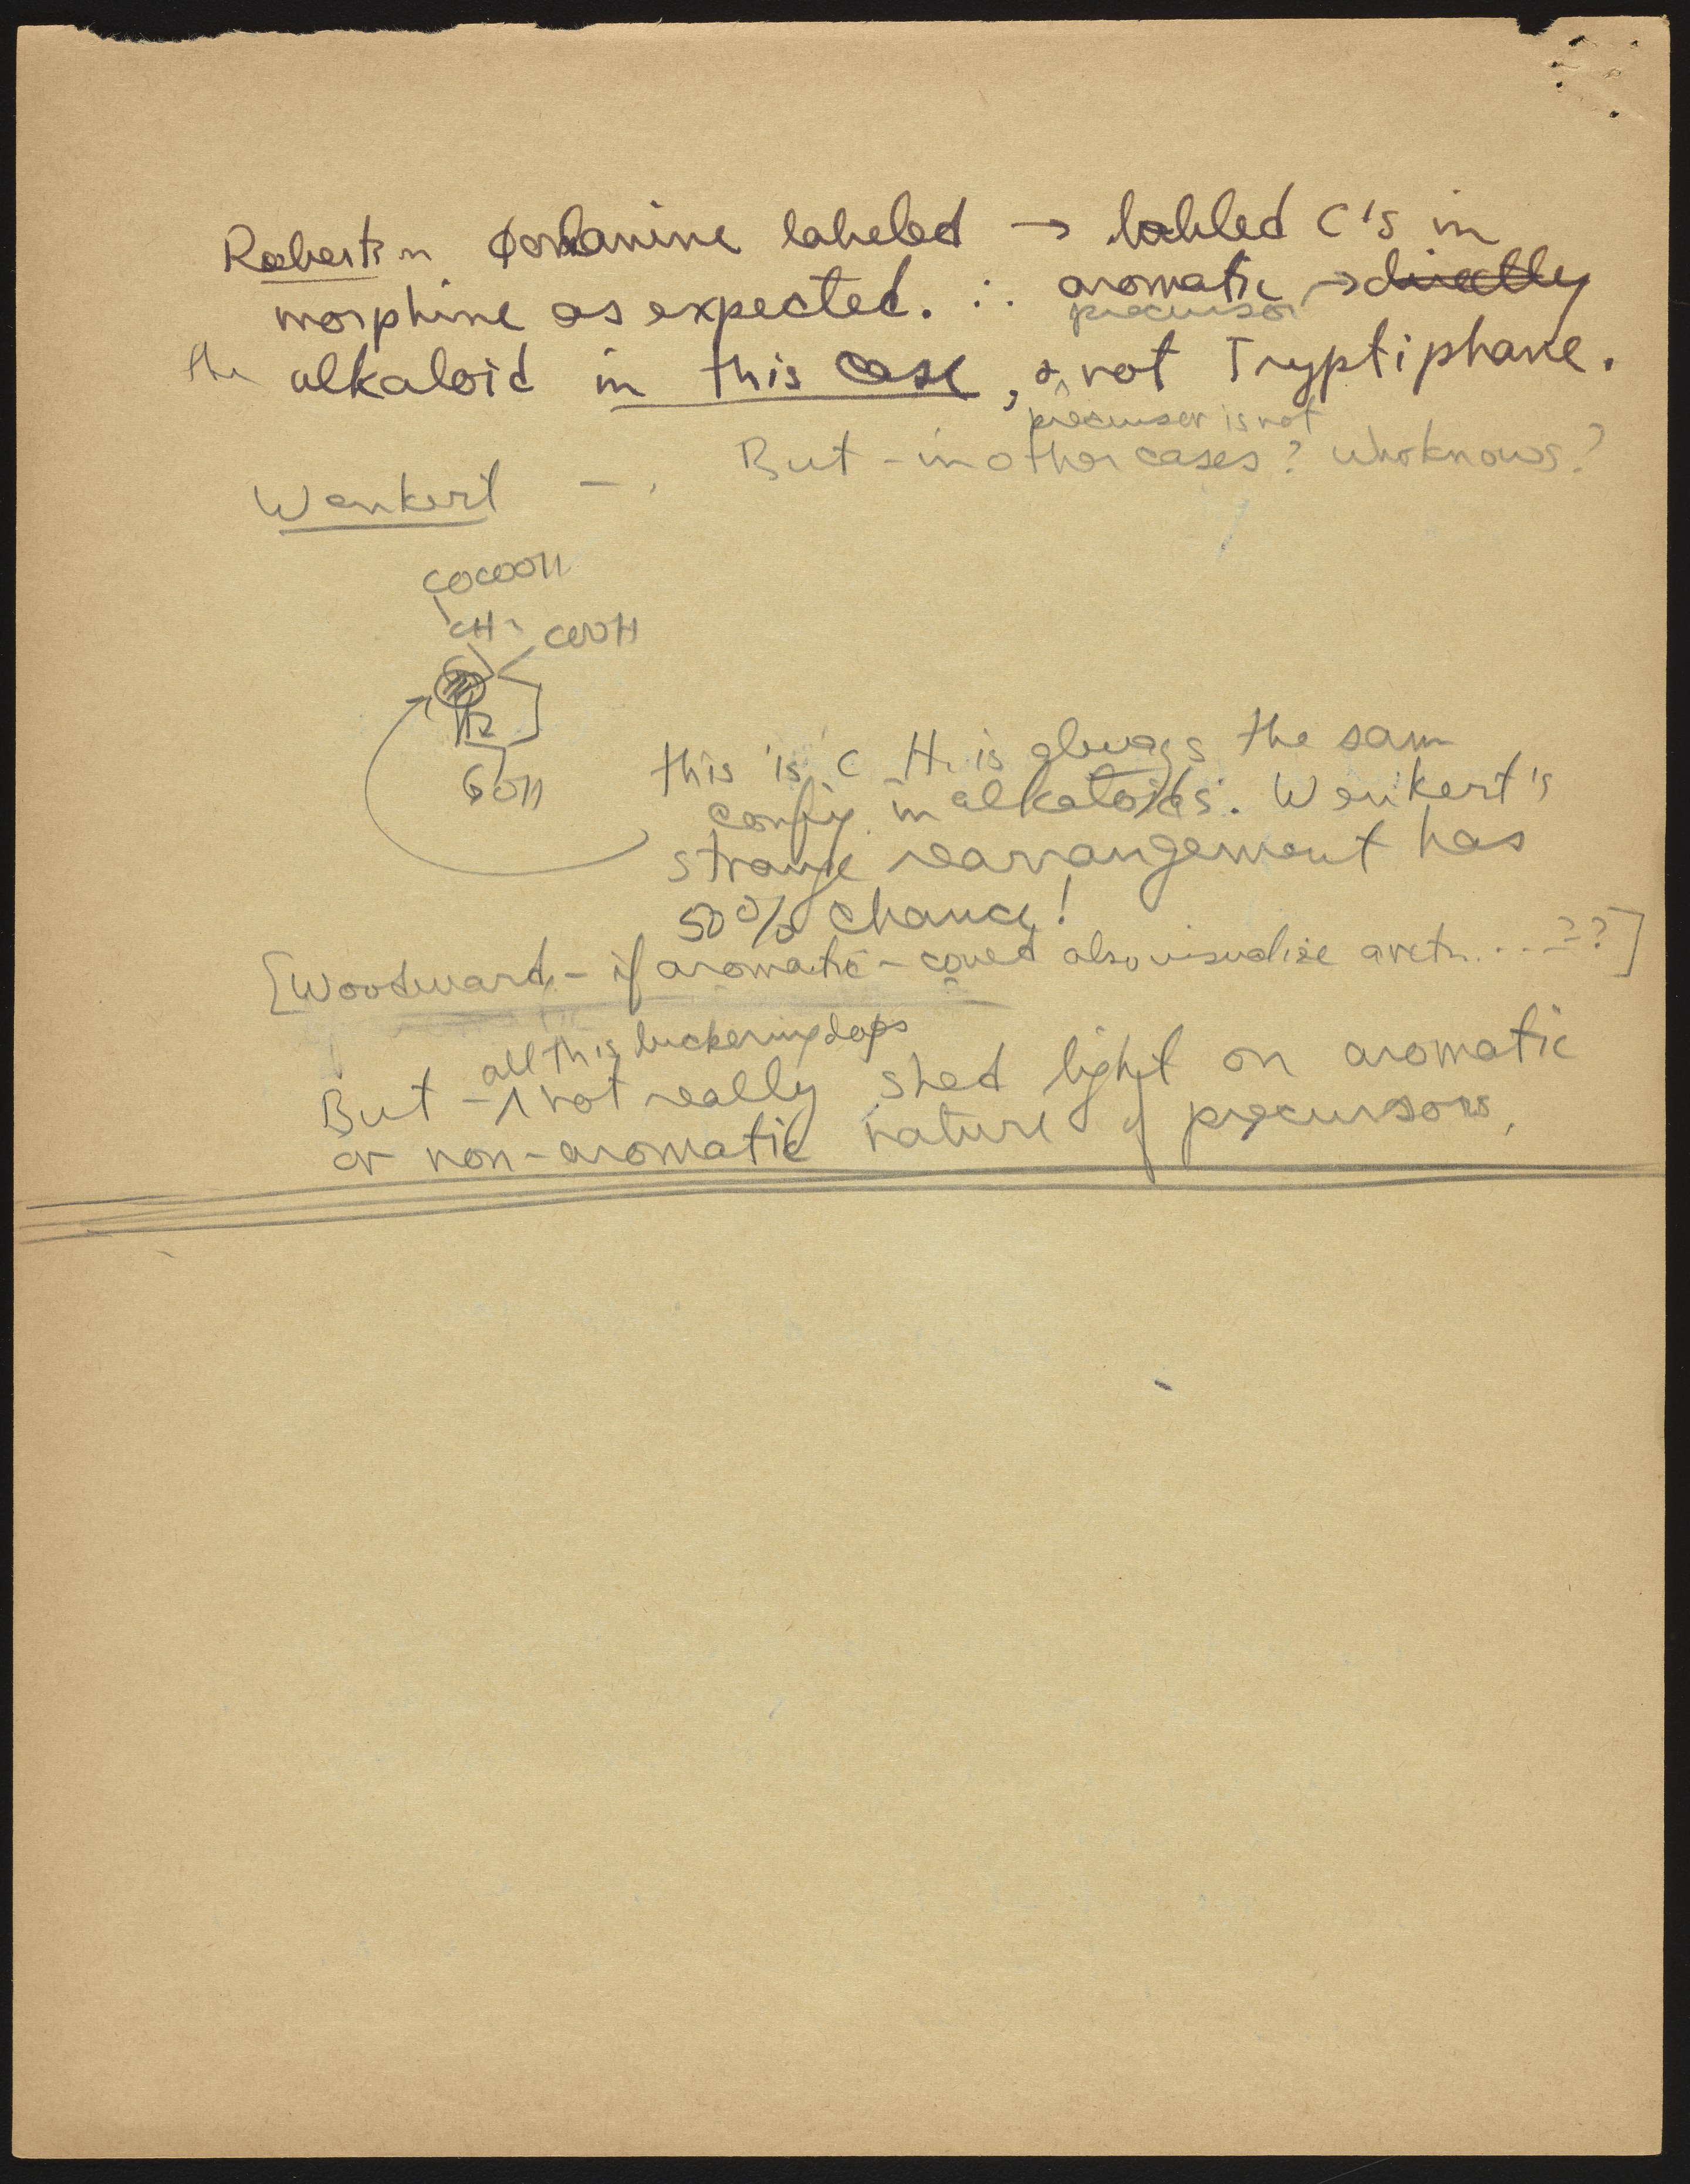 Robertson ϕalanine labeled → labled C's in
morphine as expected. ∴ aromatic → directly
precursor
the alkaloid in this case, & not Tryptiphane.
precurser is not
But - in other cases? who knows?
Wenkert -
COCOOH
CH2 COOH
H2
OH
this is C H. is always the sam
config. in alkaloids. Wenkert's
strange rearrangement has
50% chance!
[Woodward - if aromatic - coued also visualise a retr. . . . - ??]
all this buckering does
But - not really shed light on aromatic
or non-aromatic nature of precursors.